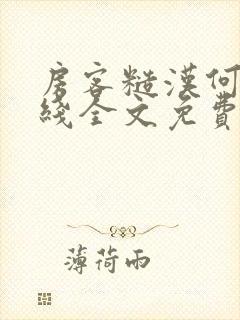 房客糙漢何
綫全文免費
薄荷雨